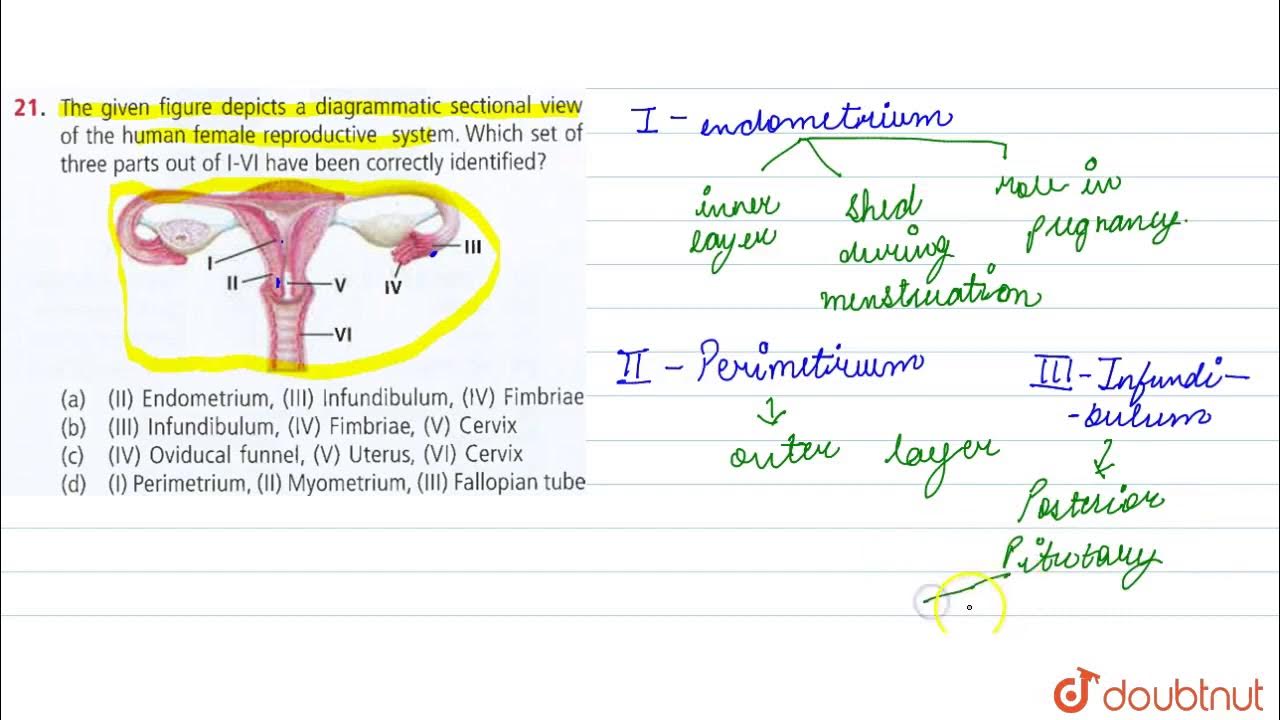 21. The given figure depicts a diagrammatic sectional view
of the human female reproductive system. Which set of
three parts out of I-VI have been correctly identified?
I
II
III
IV
V
VI
(a) (II) Endometrium, (III) Infundibulum, (IV) Fimbriae
(b) (III) Infundibulum, (IV) Fimbriae, (V) Cervix
(c) (IV) Oviducal funnel, (V) Uterus, (VI) Cervix
(d) (I) Perimetrium, (II) Myometrium, (III) Fallopian tube
I - endometrium
inner
layer
shed
during
menstruation
role in
pregnancy.
II - Perimetrium
outer layer
III - Infundi-
-bulum
Posterior
Pitutary
doubtnut